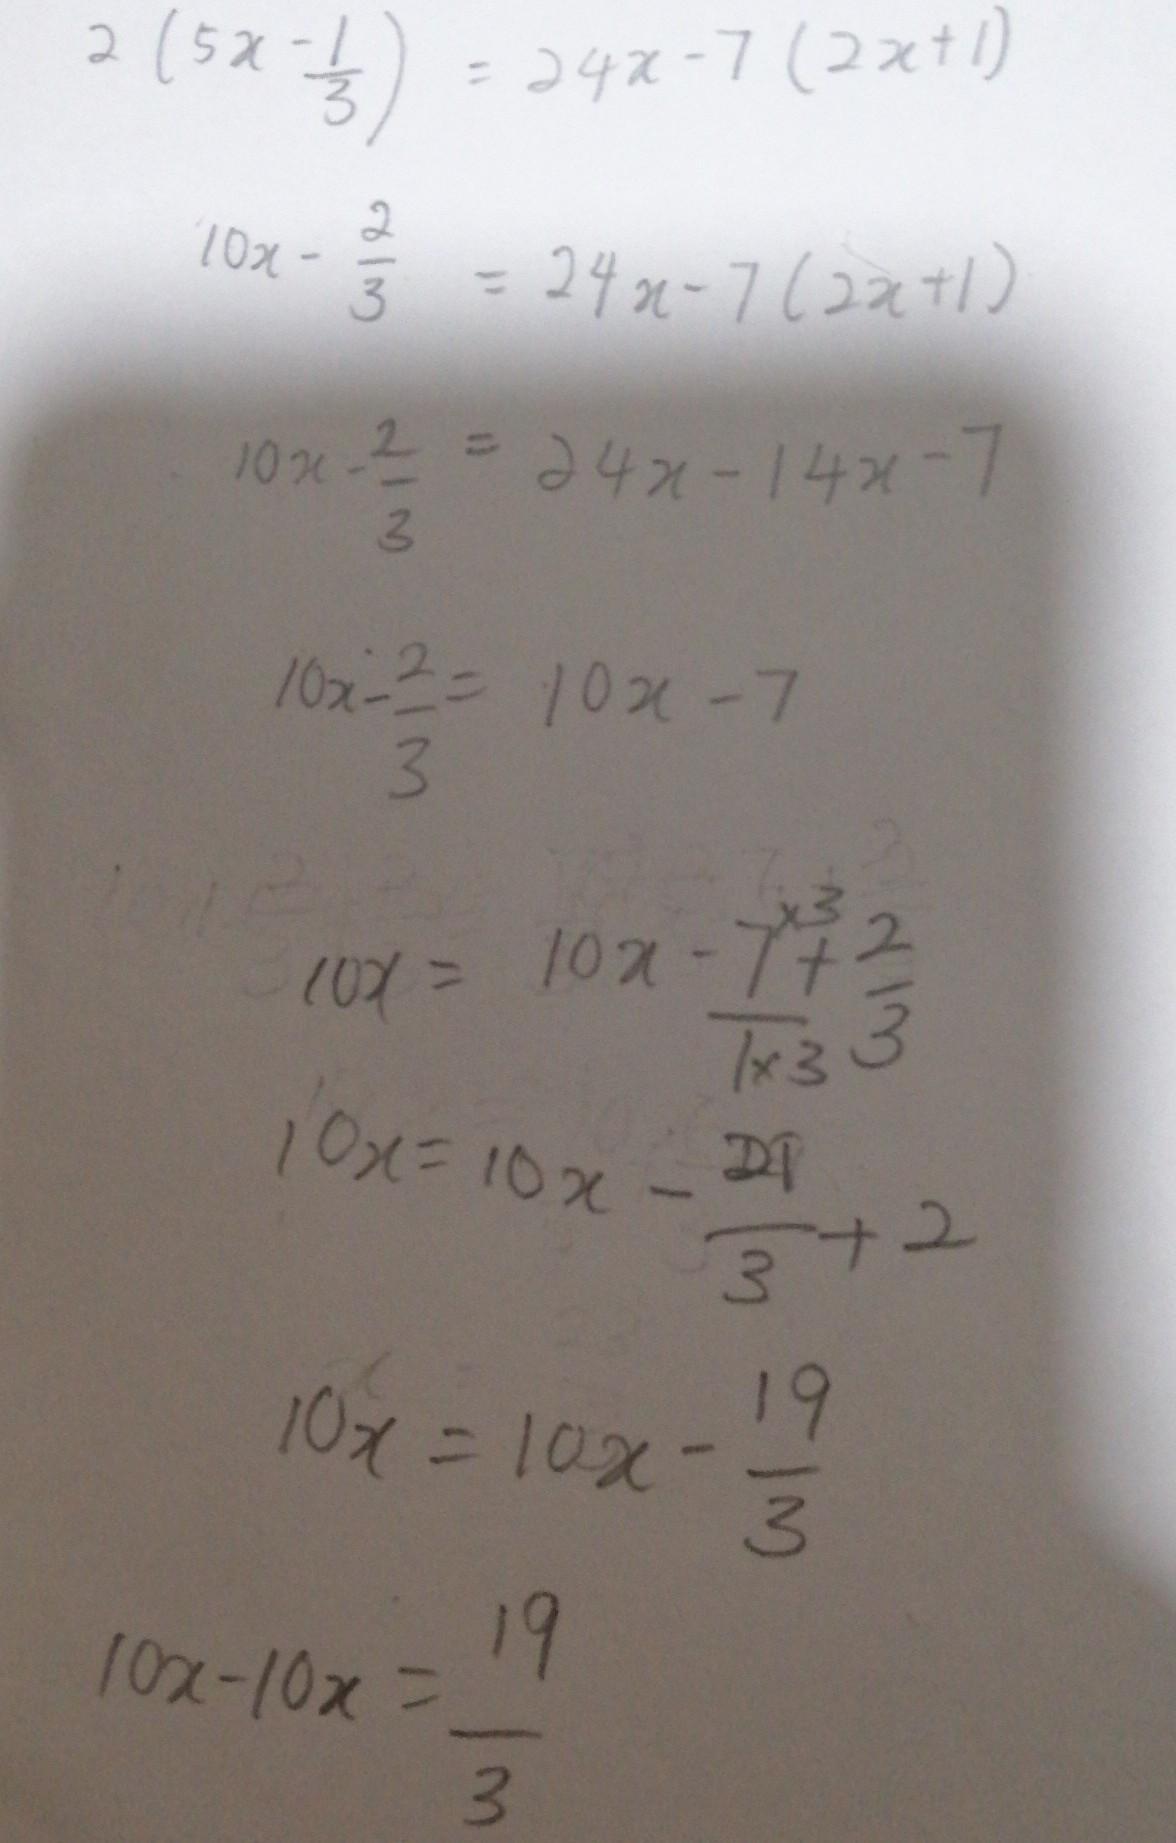 2 (5x - 1/3) = 24x - 7 (2x+1)
10x - 2/3 = 24x - 7 (2x+1)
10x - 2/3 = 24x - 14x - 7
10x - 2/3 = 10x - 7
10x = 10x - 7×3/1×3 + 2/3
10x = 10x - 21/3 + 2
10x = 10x - 19/3
10x - 10x = 19/3